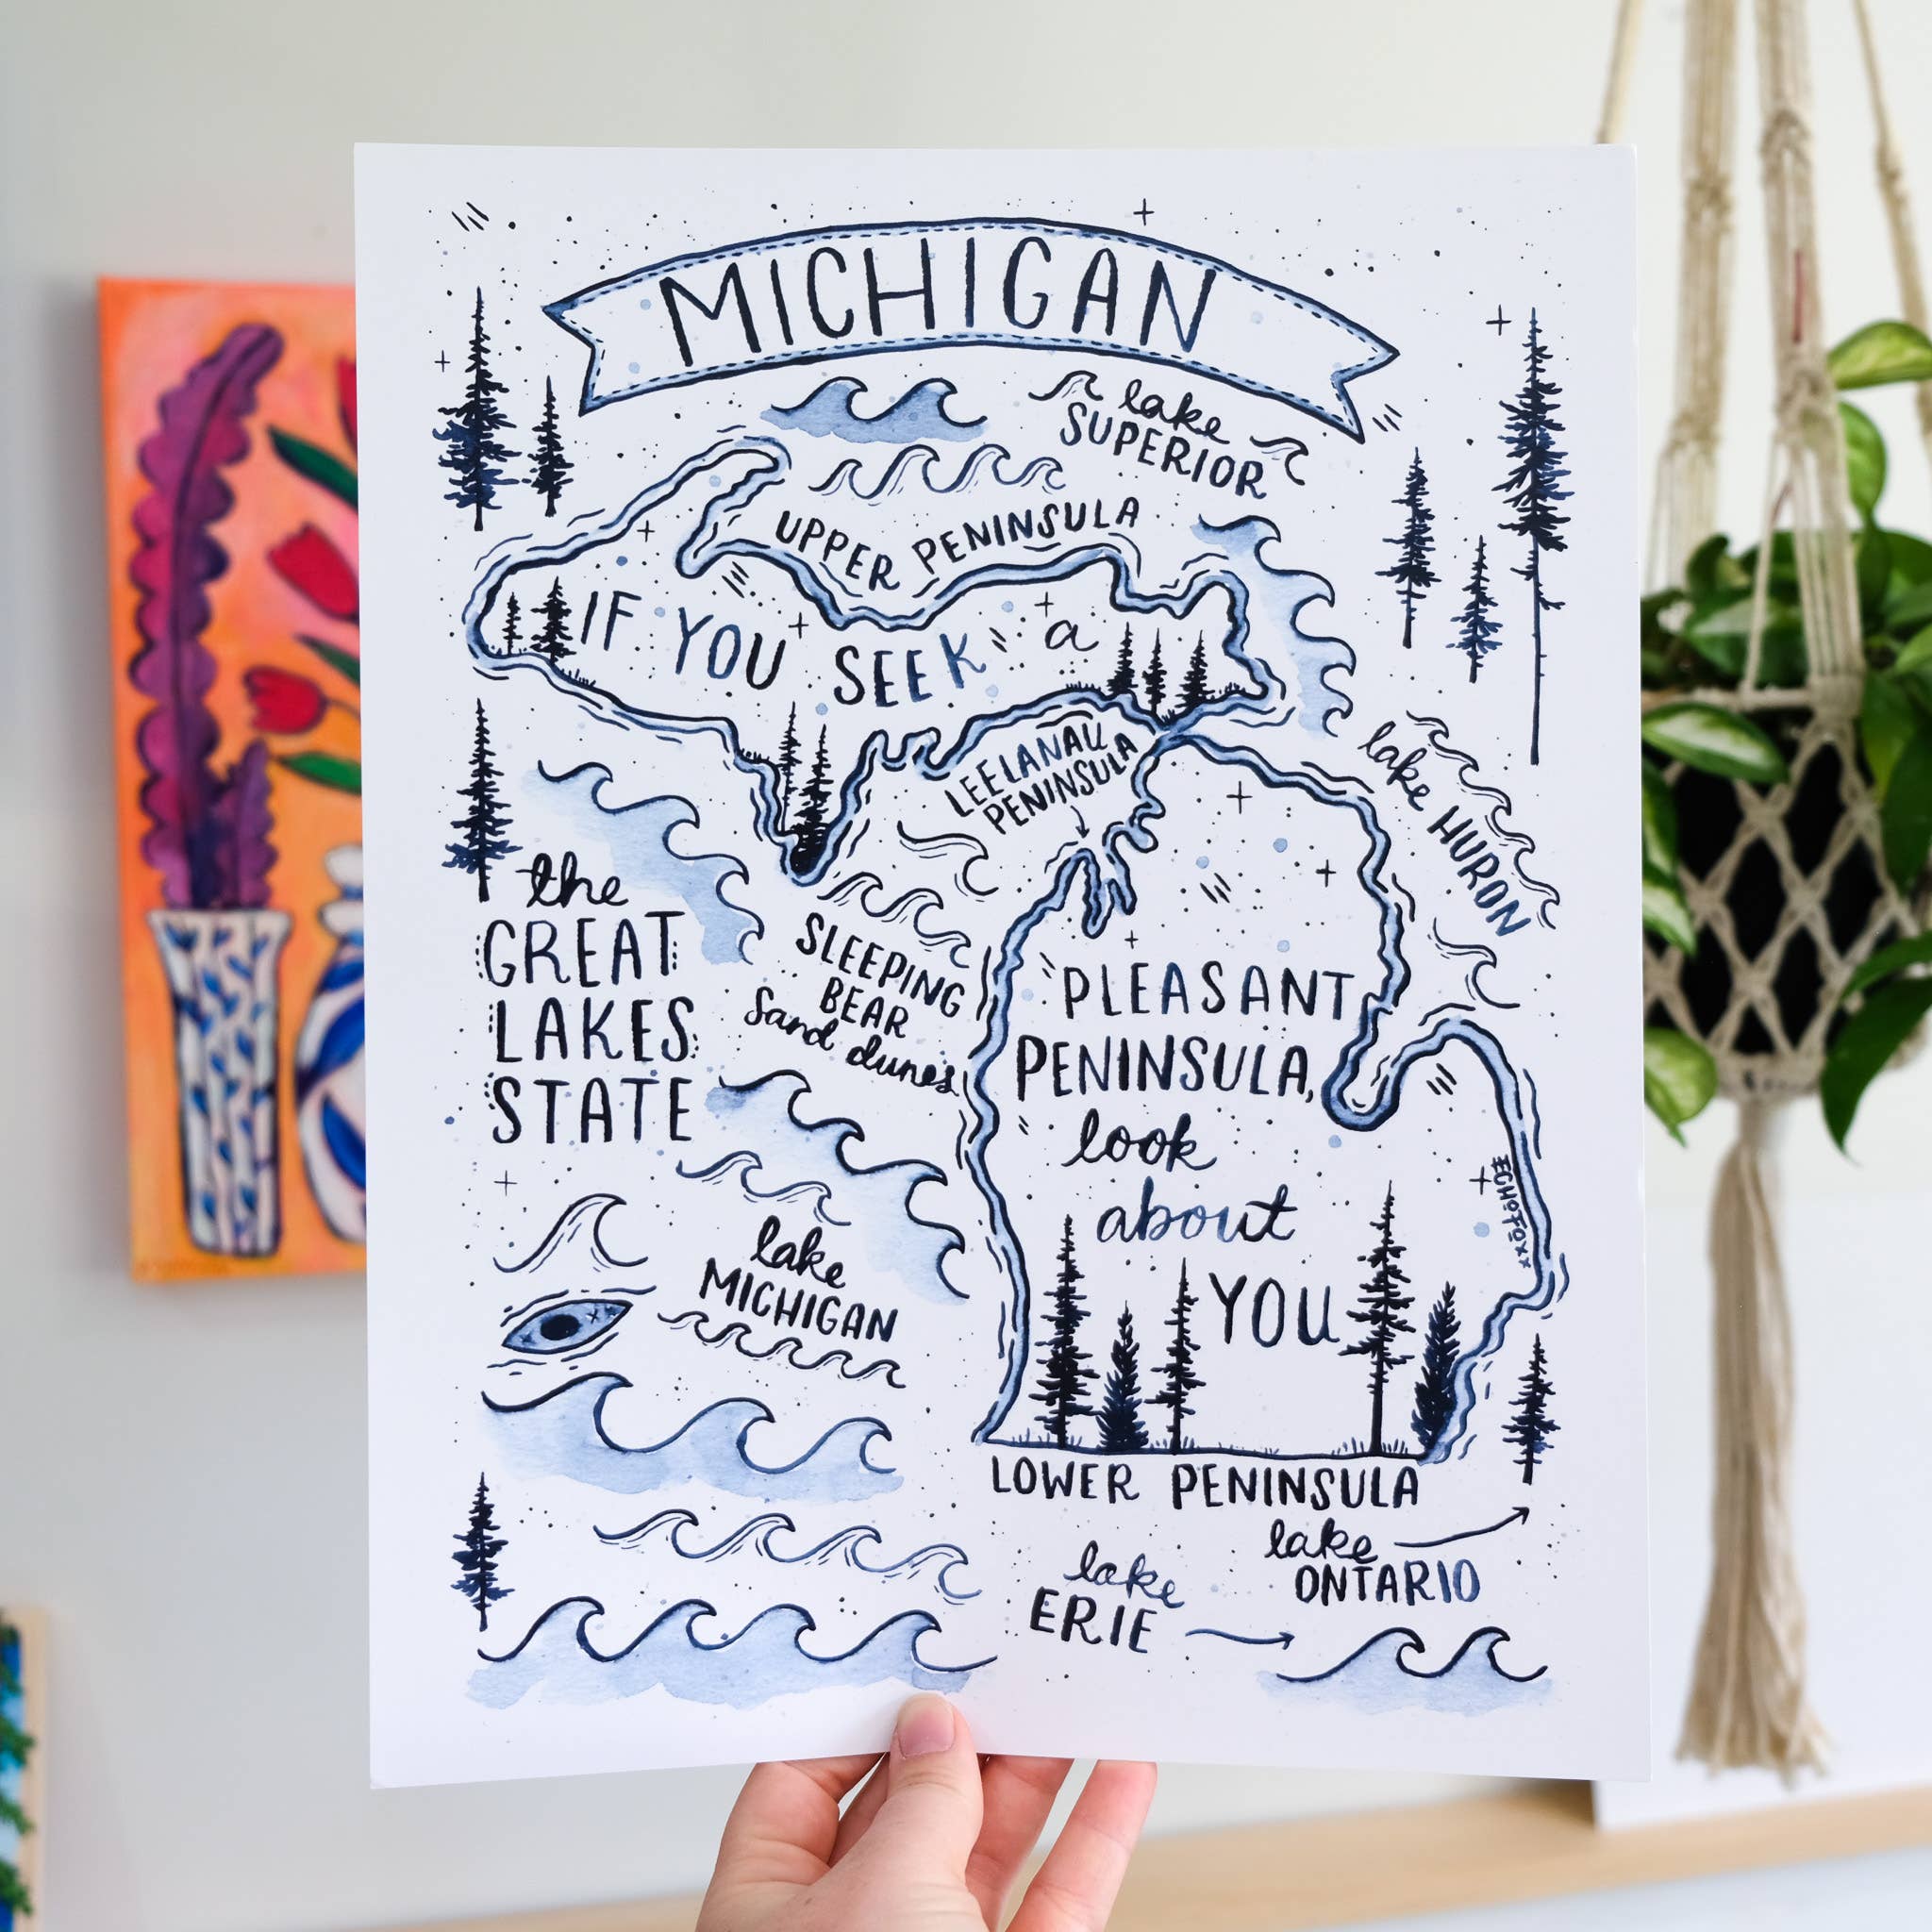 MICHIGAN
lake
SUPERIOR
UPPER PENINSULA
IF YOU SEEK a
LEELANAU
PENINSULA
lake HURON
the
GREAT
LAKES
STATE
SLEEPING
BEAR
Sand dunes
PLEASANT
PENINSULA,
look
about
YOU
ECHOFOXX
lake
MICHIGAN
LOWER PENINSULA
lake
ONTARIO
lake
ERIE